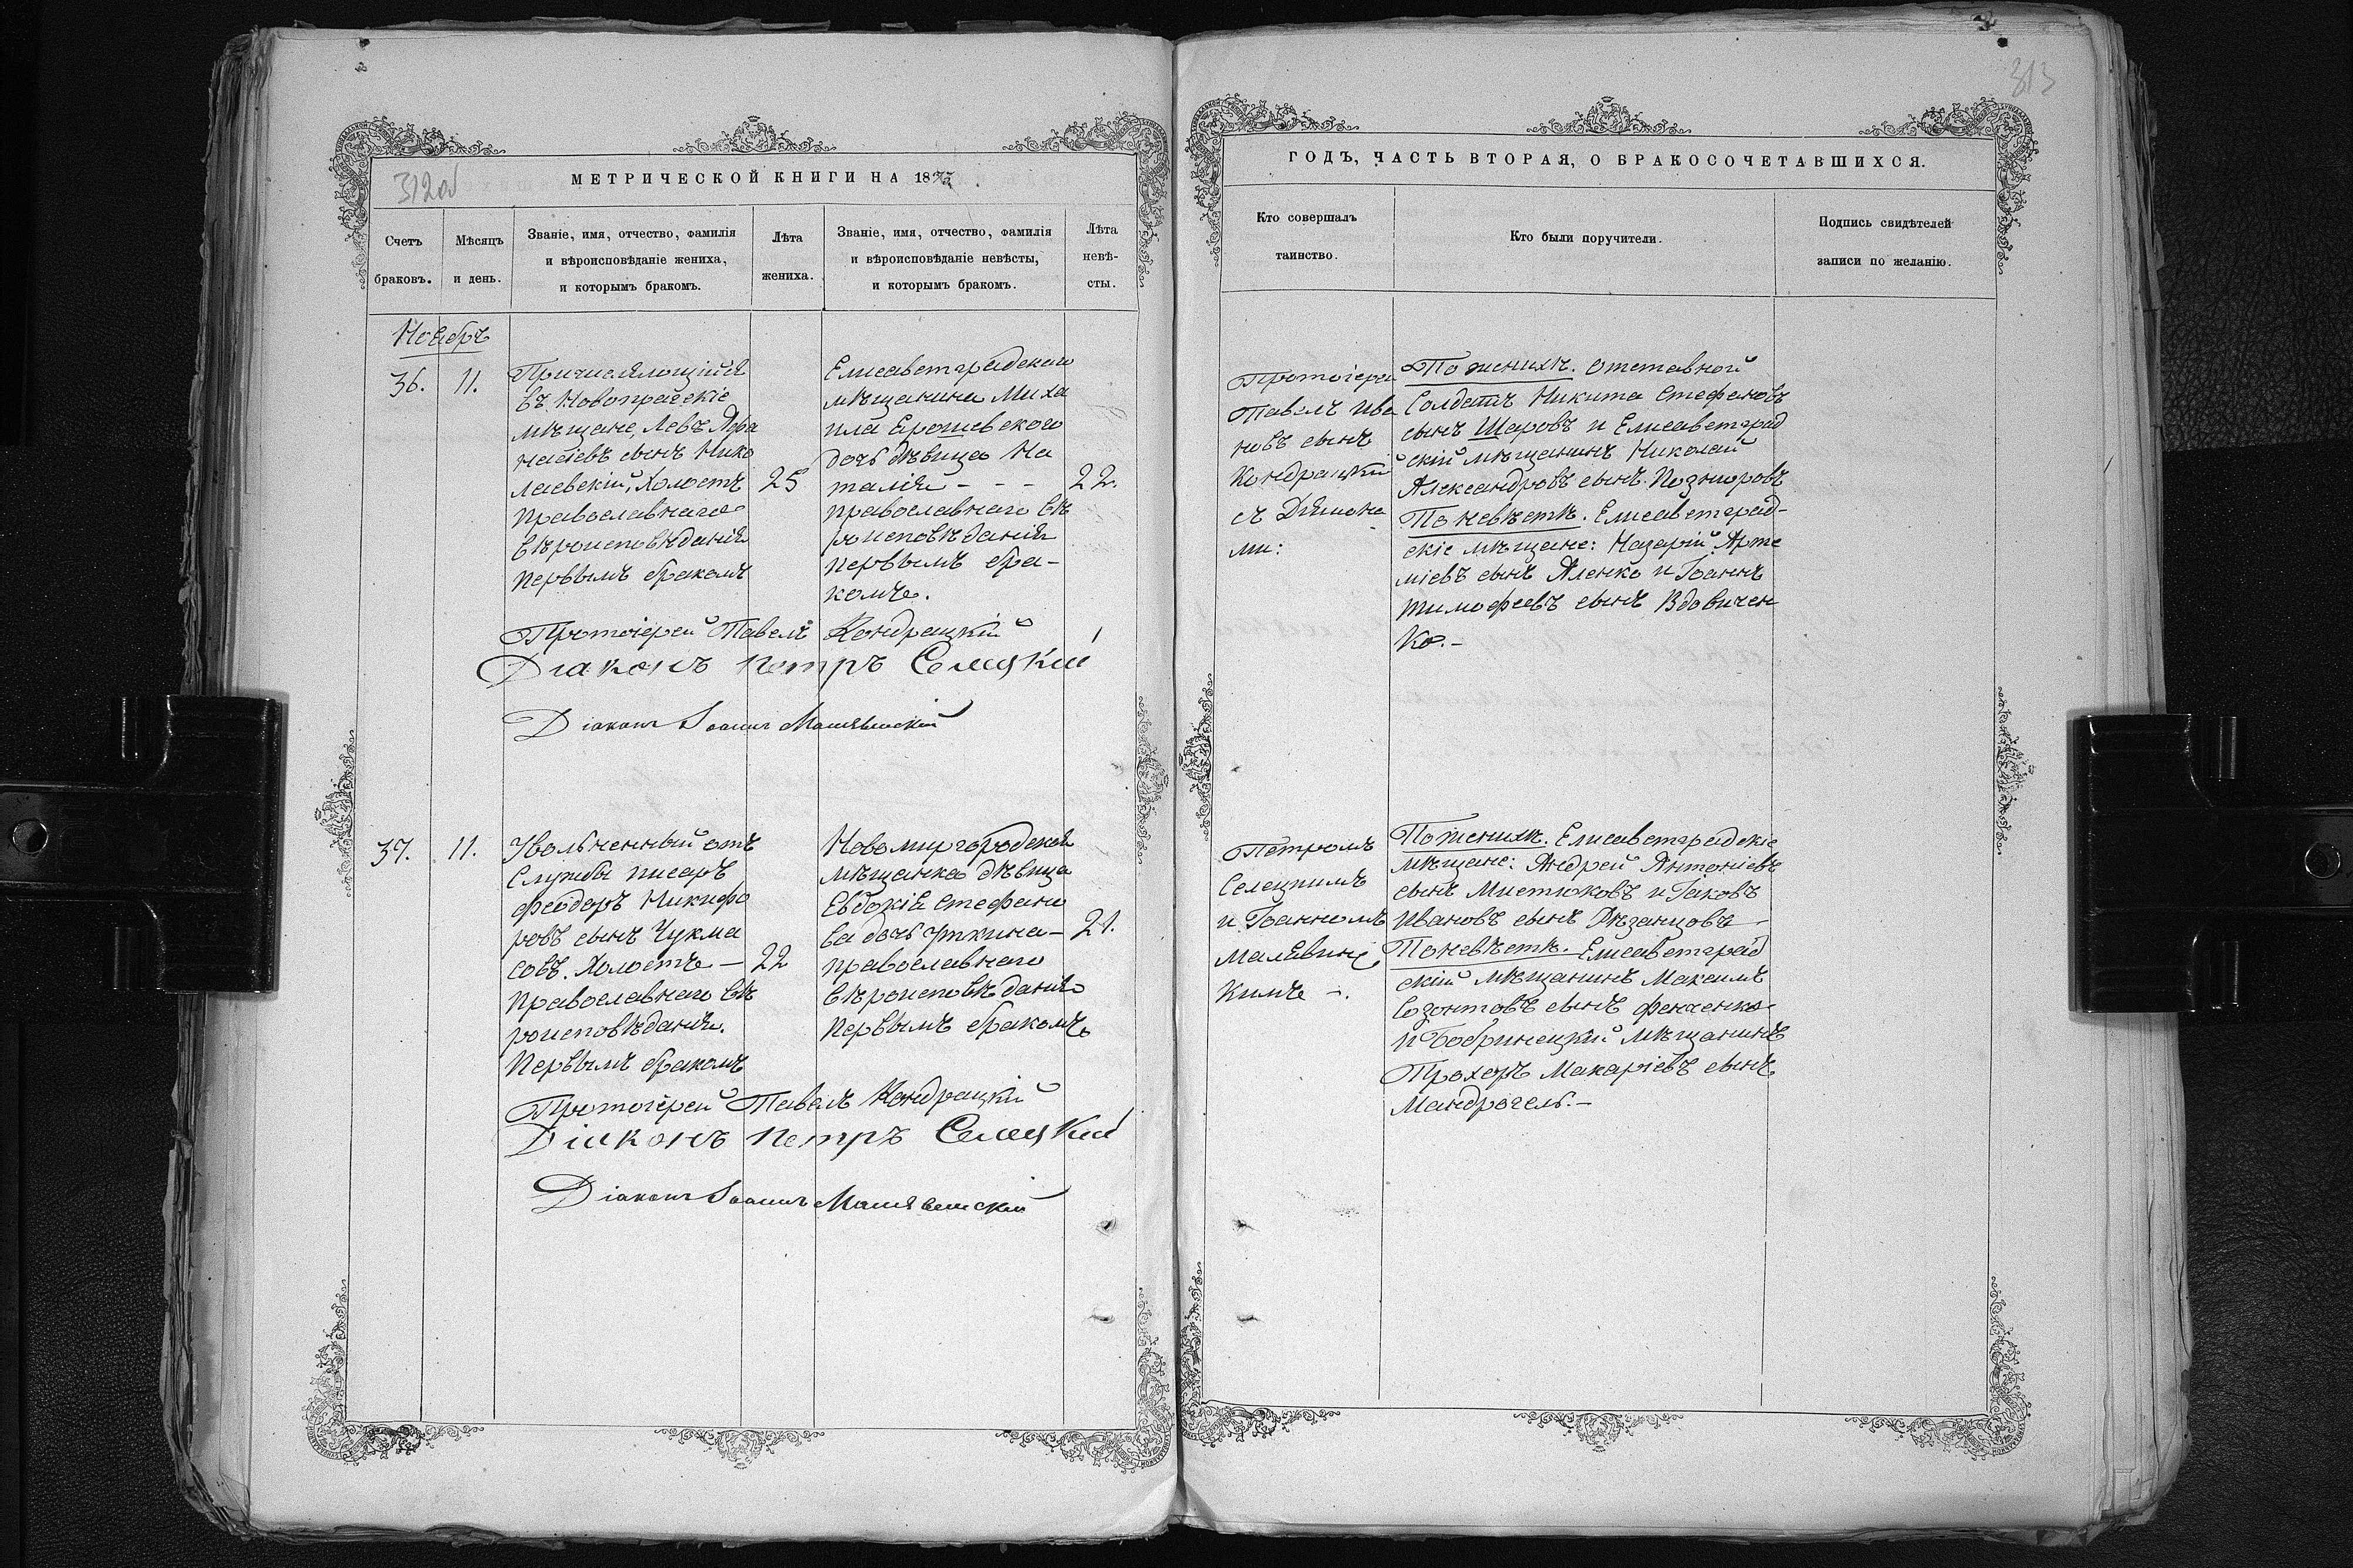 312об
МЕТРИЧЕСКОЙ КНИГИ НА 1873
Счетъ браковъ.
Мѣсяцъ и день.
Званіе, имя, отчество, фамилія
и вѣроисповѣданіе жениха,
и которымъ бракомъ.
Лѣта жениха.
Званіе, имя, отчество, фамилія
и вѣроисповѣданіе невѣсты,
и которымъ бракомъ.
Лѣта невѣ-
сты.
Ноябрь
36. 11.
Причисляющійся
въ Новопрагскіе
мѣщане, Левъ Афа
насіевъ сынъ Нико
лаевскій, Холостъ
православнаго
вѣроисповѣданія
первымъ бракомъ
25
Елисаветградскаго
мѣщанина Миха
ила Ерошевского
дочь дѣвица На
талія - - -
православнаго вѣ
роисповѣданія
первымъ бра-
комъ.
22.
Протоіерей Павелъ Кондрацкій
Діаконъ Петръ Селецкій
Діаконъ Іоаннъ Малявинскій
37. 11.
Увольненный отъ
службы писарь
Феодоръ Никифо
ровъ сынъ Чукма
совъ. Холостъ -
православнаго вѣ
роисповѣданія.
Первымъ бракомъ
22
Новомиргородская
мѣщанка дѣвица
Евдокія Стефано
ва дочь Уткина -
православнаго
вѣроисповѣданія
первымъ бракомъ
21.
Протоіерей Павелъ Кондрацкій
Діаконъ Петръ Селецкій
Діаконъ Іоаннъ Малявинскій
313
ГОДЪ, ЧАСТЬ ВТОРАЯ, О БРАКОСОЧЕТАВШИХСЯ.
Кто совершалъ
таинство.
Кто были поручители.
Подпись свидѣтелей
записи по желанію.
Протоіерей
Павелъ Ива
новъ сынъ
Кондрацкій
съ Діакона
ми:
По женихѣ. Отставной
Солдатъ Никита Стефановъ
сынъ Шаровъ и Елисаветград
скій мѣщанинъ Николай
Александровъ сынъ Позноровъ
По невѣстѣ. Елисаветград-
скіе мѣщане: Назарій Арте
міевъ сынъ Яленко и Іоаннъ
Тимофеевъ сынъ Вдовичен
ко.-
Петромъ
Селецкимъ
и Іоанномъ
Малявинс
кимъ -.
По женихѣ. Елисаветградскіе
мѣщане: Андрей Антоніевъ
сынъ Мистюковъ и Іаковъ
Ивановъ сынъ Рѣзанцовъ -
По невѣстѣ. Елисаветград
скій мѣщанинъ Максимъ
Созонтовъ сынъ Фенченко
и Бобринецкій мѣщанинъ
Прохоръ Макаріевъ сынъ
Мандрогель.-